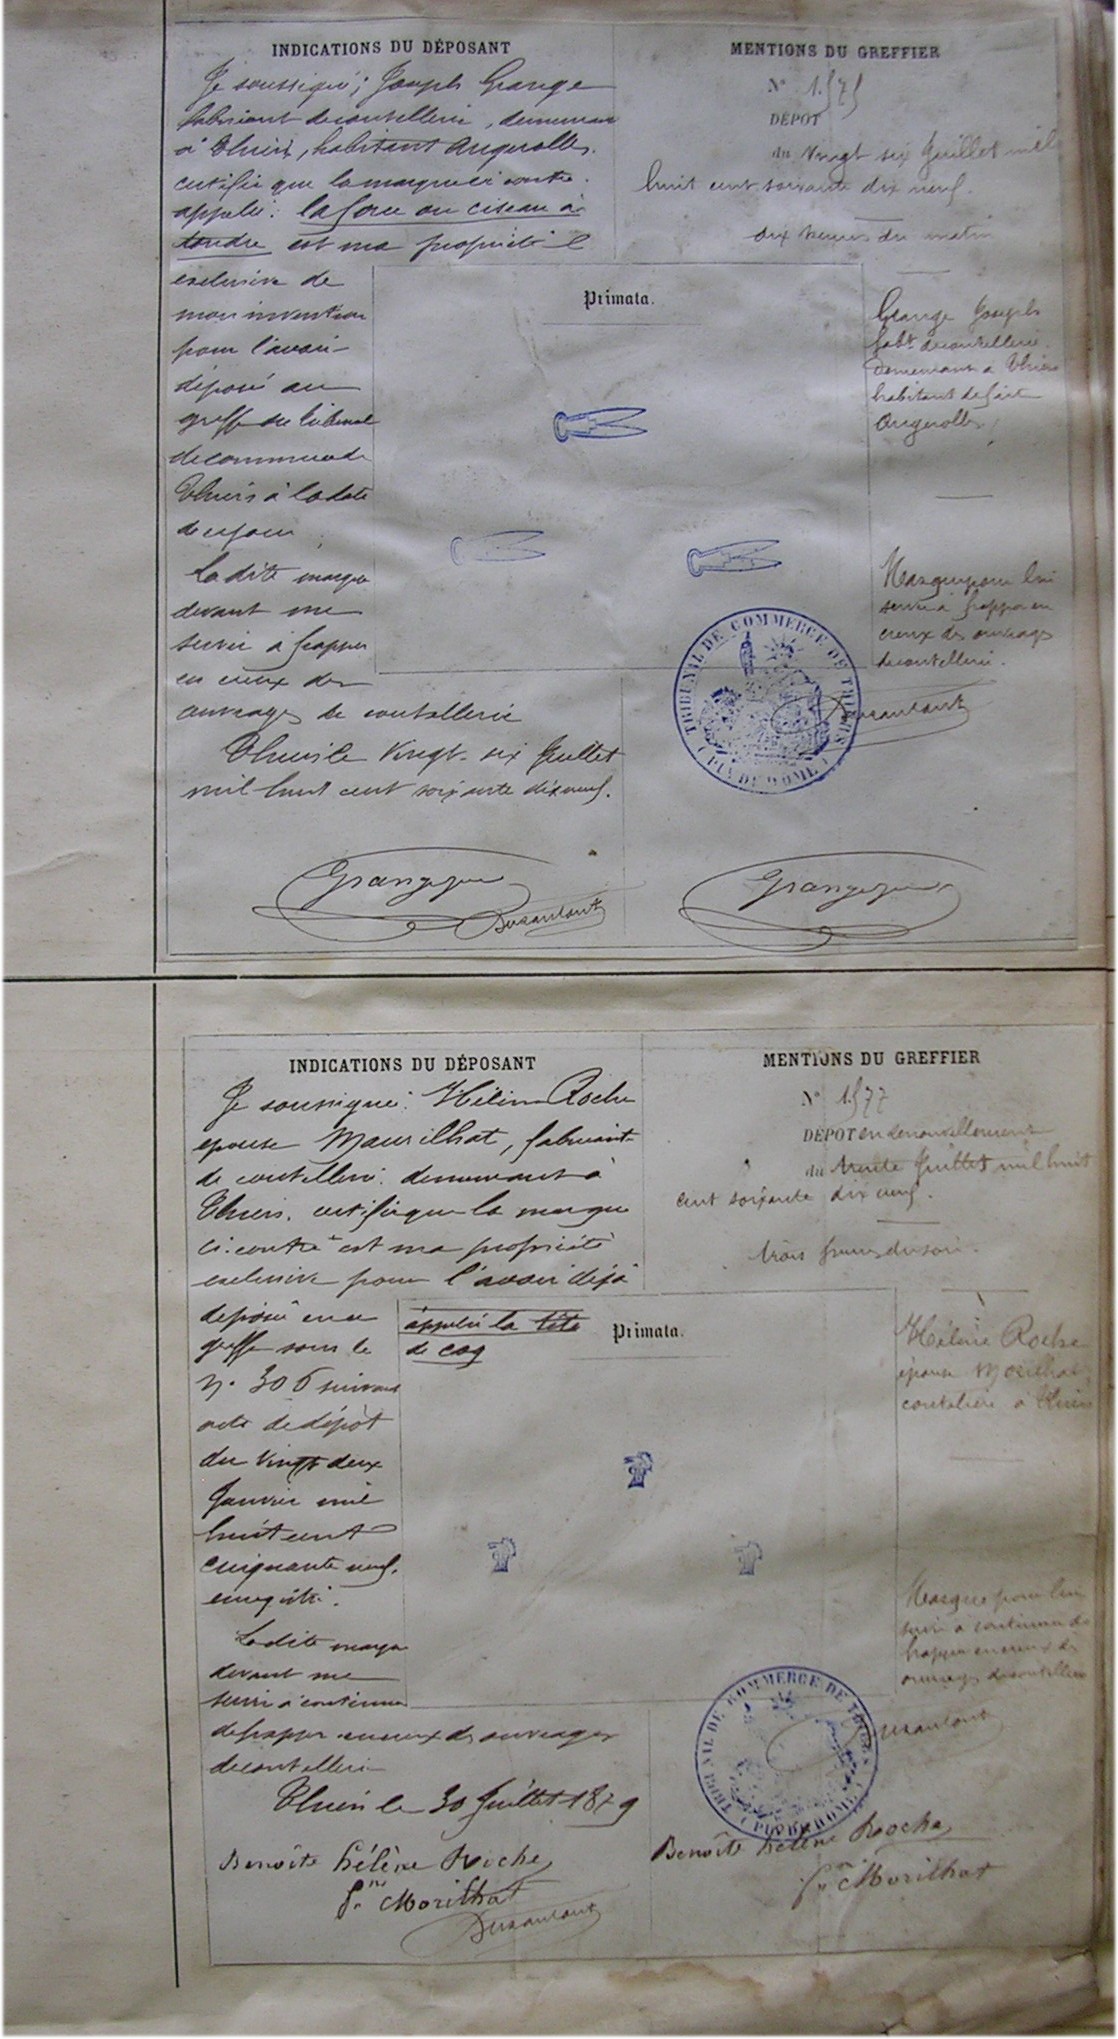 INDICATIONS DU DÉPOSANT
Je soussigné; Joseph Grange
fabricant de coutellerie, demeurant
à Thiers, habitant Augerolles.
certifie que la marque ci contre
appelée: la force ou ciseau à
tondre est ma propriété
exclusive de
mon invention
pour l'avoir
déposé au
greffe du tribunal
de commerce de
Thiers à la date
de ce jour
La dite marque
devant me
servir à frapper
en creux des
ouvrages de coutellerie
Thiers le vingt-six Juillet
mil huit cent soixante dix neuf.
Grange
Dusaulant
MENTIONS DU GREFFIER
N° 1575
DÉPOT
du vingt six Juillet mil
huit cent soixante dix neuf.
dix heures du matin
Primata.
Grange Joseph
fabt de coutellerie
demeurant à Thiers
habitant de fait
Augerolles
Marque pour lui
servir à frapper en
creux des ouvrages
de coutellerie.
Dusaulant
TRIBUNAL DE COMMERCE DE THIERS
(PUY DE DOME)
Grange
INDICATIONS DU DÉPOSANT
Je soussigné: Hélène Roche
épouse Maurilhat, fabricant
de coutellerie demeurant à
Thiers. certifie que la marque
ci-contre est ma propriété
exclusive pour l'avoir déjà
déposé en ce
greffe sous le
n° 306 suivant
acte de dépôt
du vingt deux
Janvier mil
huit cent
cinquante neuf.
enregistré.
La dite marque
devant me
servir à continuer
de frapper en creux des ouvrages
de coutellerie
Thiers le 30 Juillet 1879
Benoîte hélène Roche
fme Morilhat
Dusaulant
MENTIONS DU GREFFIER
N° 1577
DÉPOT en renouvellement
du trente Juillet mil huit
cent soixante dix neuf.
trois heures du soir.
appelée la tête
de coq
Primata.
Hélène Roche
épouse Morilhat
coutelière à Thiers
Marque pour lui
servir à continuer de
frapper en creux des
ouvrages de coutellerie
Dusaulant
TRIBUNAL DE COMMERCE DE THIERS
(PUY DE DOME)
Benoîte hélène Roche
fme Morilhat